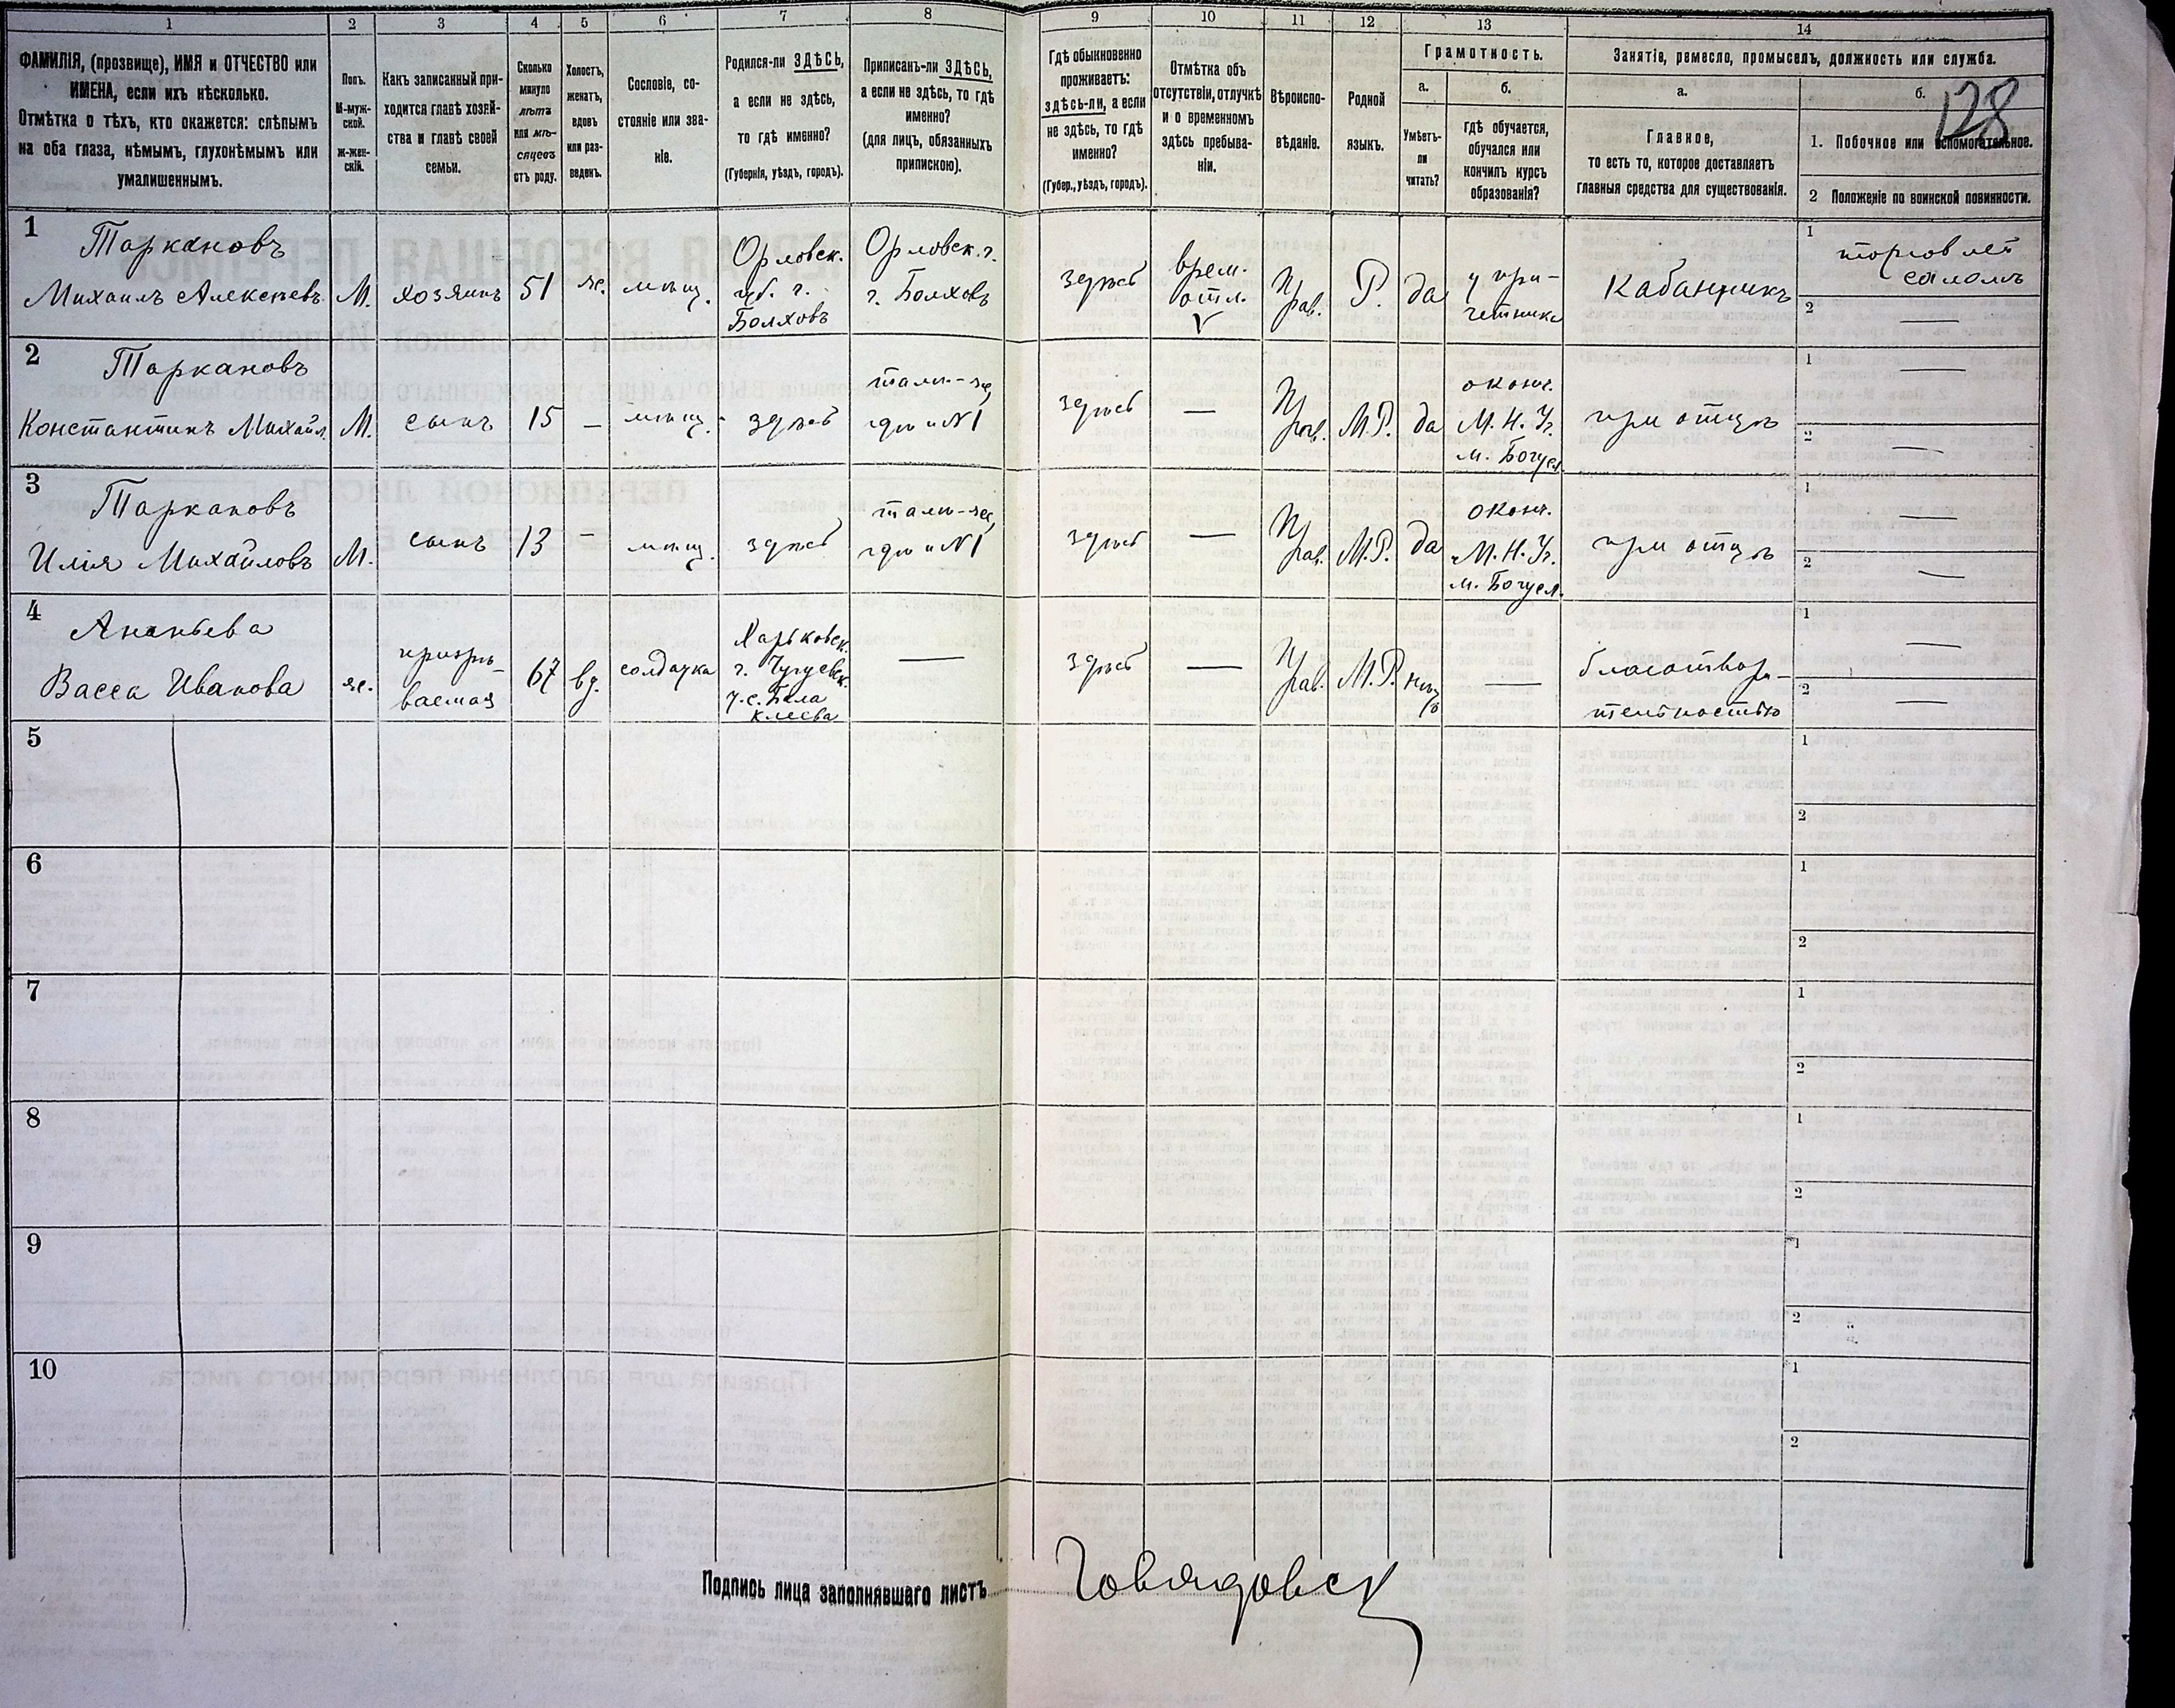 1 2 3 4 5 6 7 8 9 10 11 12 13 14
ФАМИЛІЯ, (прозвище), ИМЯ и ОТЧЕСТВО или
ИМЕНА, если ихъ нѣсколько.
Отмѣтка о тѣхъ, кто окажется: слѣпымъ
на оба глаза, нѣмымъ, глухонѣмымъ или
умалишеннымъ.
Полъ.
М-муж-
ской.
Ж-жен-
скій.
Какъ записанный при-
ходится главѣ хозяй-
ства и главѣ своей
семьи.
Сколько
минуло
лѣтъ
или мѣ-
сяцевъ
отъ роду.
Холостъ,
женатъ,
вдовъ
или раз-
веденъ.
Сословіе, со-
стояніе или зва-
ніе.
Родился-ли ЗДѢСЬ,
а если не здѣсь,
то гдѣ именно?
(Губернія, уѣздъ, городъ).
Приписанъ-ли ЗДѢСЬ,
а если не здѣсь, то гдѣ
именно?
(для лицъ, обязанныхъ
припискою).
Гдѣ обыкновенно
проживаетъ:
здѣсь-ли, а если
не здѣсь, то гдѣ
именно?
(Губер., уѣздъ, городъ).
Отмѣтка объ
отсутствіи, отлучкѣ
и о временномъ
здѣсь пребыва-
ніи.
Вѣроиспо-
вѣданіе.
Родной
языкъ.
Грамотность.
а.
Умѣетъ-
ли
читать?
б.
Гдѣ обучается,
обучался или
кончилъ курсъ
образованія?
Занятіе, ремесло, промыселъ, должность или служба.
а.
Главное,
то есть то, которое доставляетъ
главныя средства для существованія.
б.
128
1. Побочное или вспомогательное.
2 Положеніе по воинской повинности.
1
Таркановъ
Михаилъ Алексѣевъ
М.
хозяинъ
51
же.
мѣщ.
Орловск.
губ. г.
Болховъ
Орловск. г.
г. Болховъ
здѣсь
врем.
отл.
V
Прав.
Р.
да
у при-
четника
Кабанникъ
1
торговлей
саломъ
2 —
2
Таркановъ
Константинъ Михайл.
М.
сынъ
15
—
мѣщ.
здѣсь
тамъ-же,
гдѣ и №1
здѣсь
—
Прав.
М.Р.
да
оконч.
М. Н. Уч.
м. Богусл.
при отцѣ
1 —
2 —
3
Таркановъ
Илія Михайловъ
М.
сынъ
13
—
мѣщ.
здѣсь
тамъ-же,
гдѣ и №1
здѣсь
—
Прав.
М.Р.
да
оконч.
М. Н. Уч.
м. Богусл.
при отцѣ
1 —
2 —
4
Ананьева
Васса Иванова
же.
призрѣ-
ваемая
67
вд.
солдатка
Харьковск.
г. Чугуевск.
у. с. Бала
клеева
—
здѣсь
—
Прав.
М.Р.
нѣтъ
—
благотвори-
тельностью
1 —
2 —
5
1
2
6
1
2
7
1
2
8
1
2
9
1
2
10
1
2
Подпись лица заполнявшаго листъ